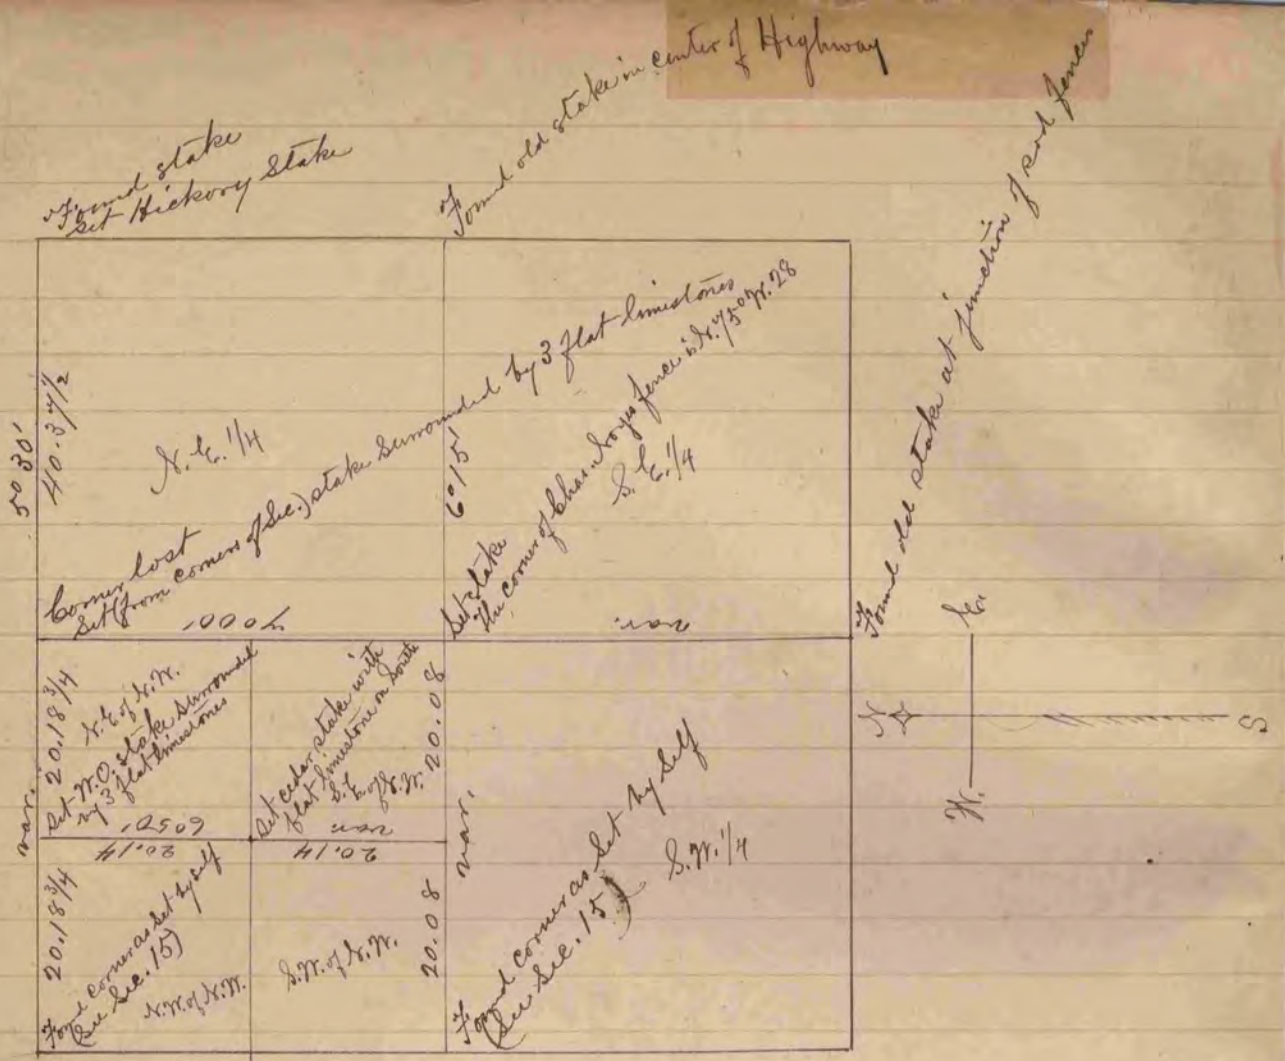 Found stake
Set Hickory Stake
Found old stake in center of Highway
Found old stake at junction of rod fences
5° 30'
40.37 1/2
N.E. 1/4
Corner lost
Set (from corners of Sec.) stake surrounded by 3 flat limestones
7°00'
6°15'
Set stake
The corner of Chas. Noyes fence is N. 75° W. 28
S.E. 1/4
var.
var.
20.18 3/4
N.E. of N.W.
Set W.O. stake surrounded
by 3 flat limestones
6°50'
20.14
Set cedar stake with
flat limestone on South
S.E. of N.W.
20.08
var.
20.14
var.
20.18 3/4
Found corner as set by self
(See Sec. 15)
N.W. of N.W.
S.W. of N.W.
20.08
Found corner as set by self
(See Sec. 15)
S.W. 1/4
E.
N
S
W.